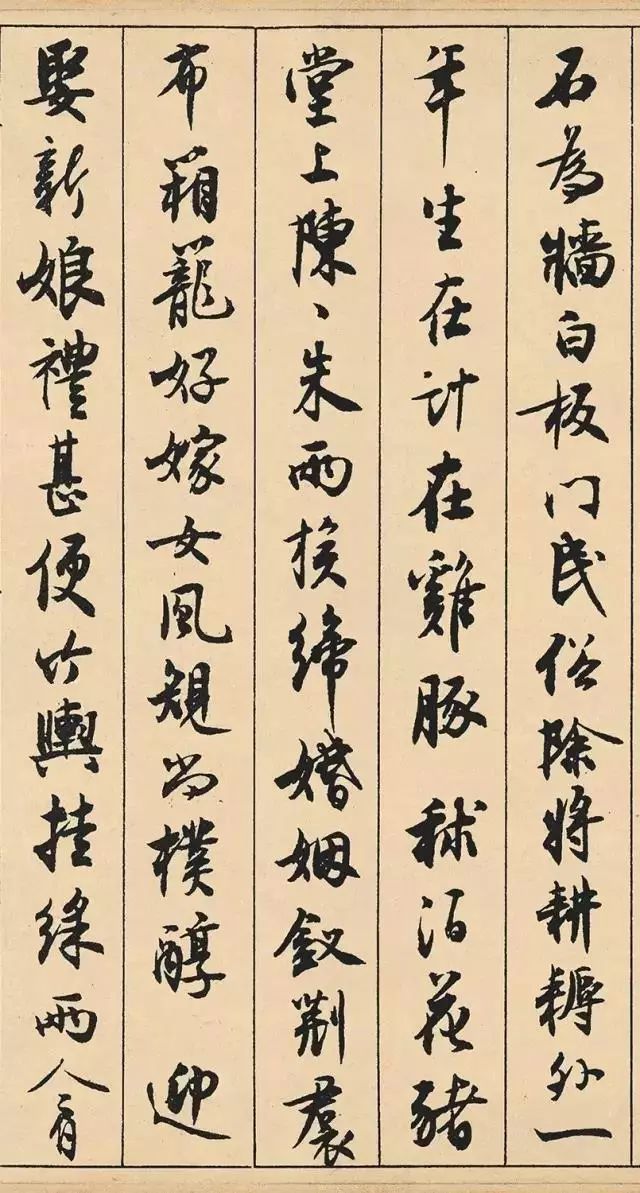 石為牆白板门民俗除將耕耨外一
年生在計在雞豚 秫酒花豬
堂上陳、朱兩族締婚姻釵荆裠
布箱籠好嫁女風規尚樸醇 迎
娶新娘禮甚便竹輿挂綵兩人肩